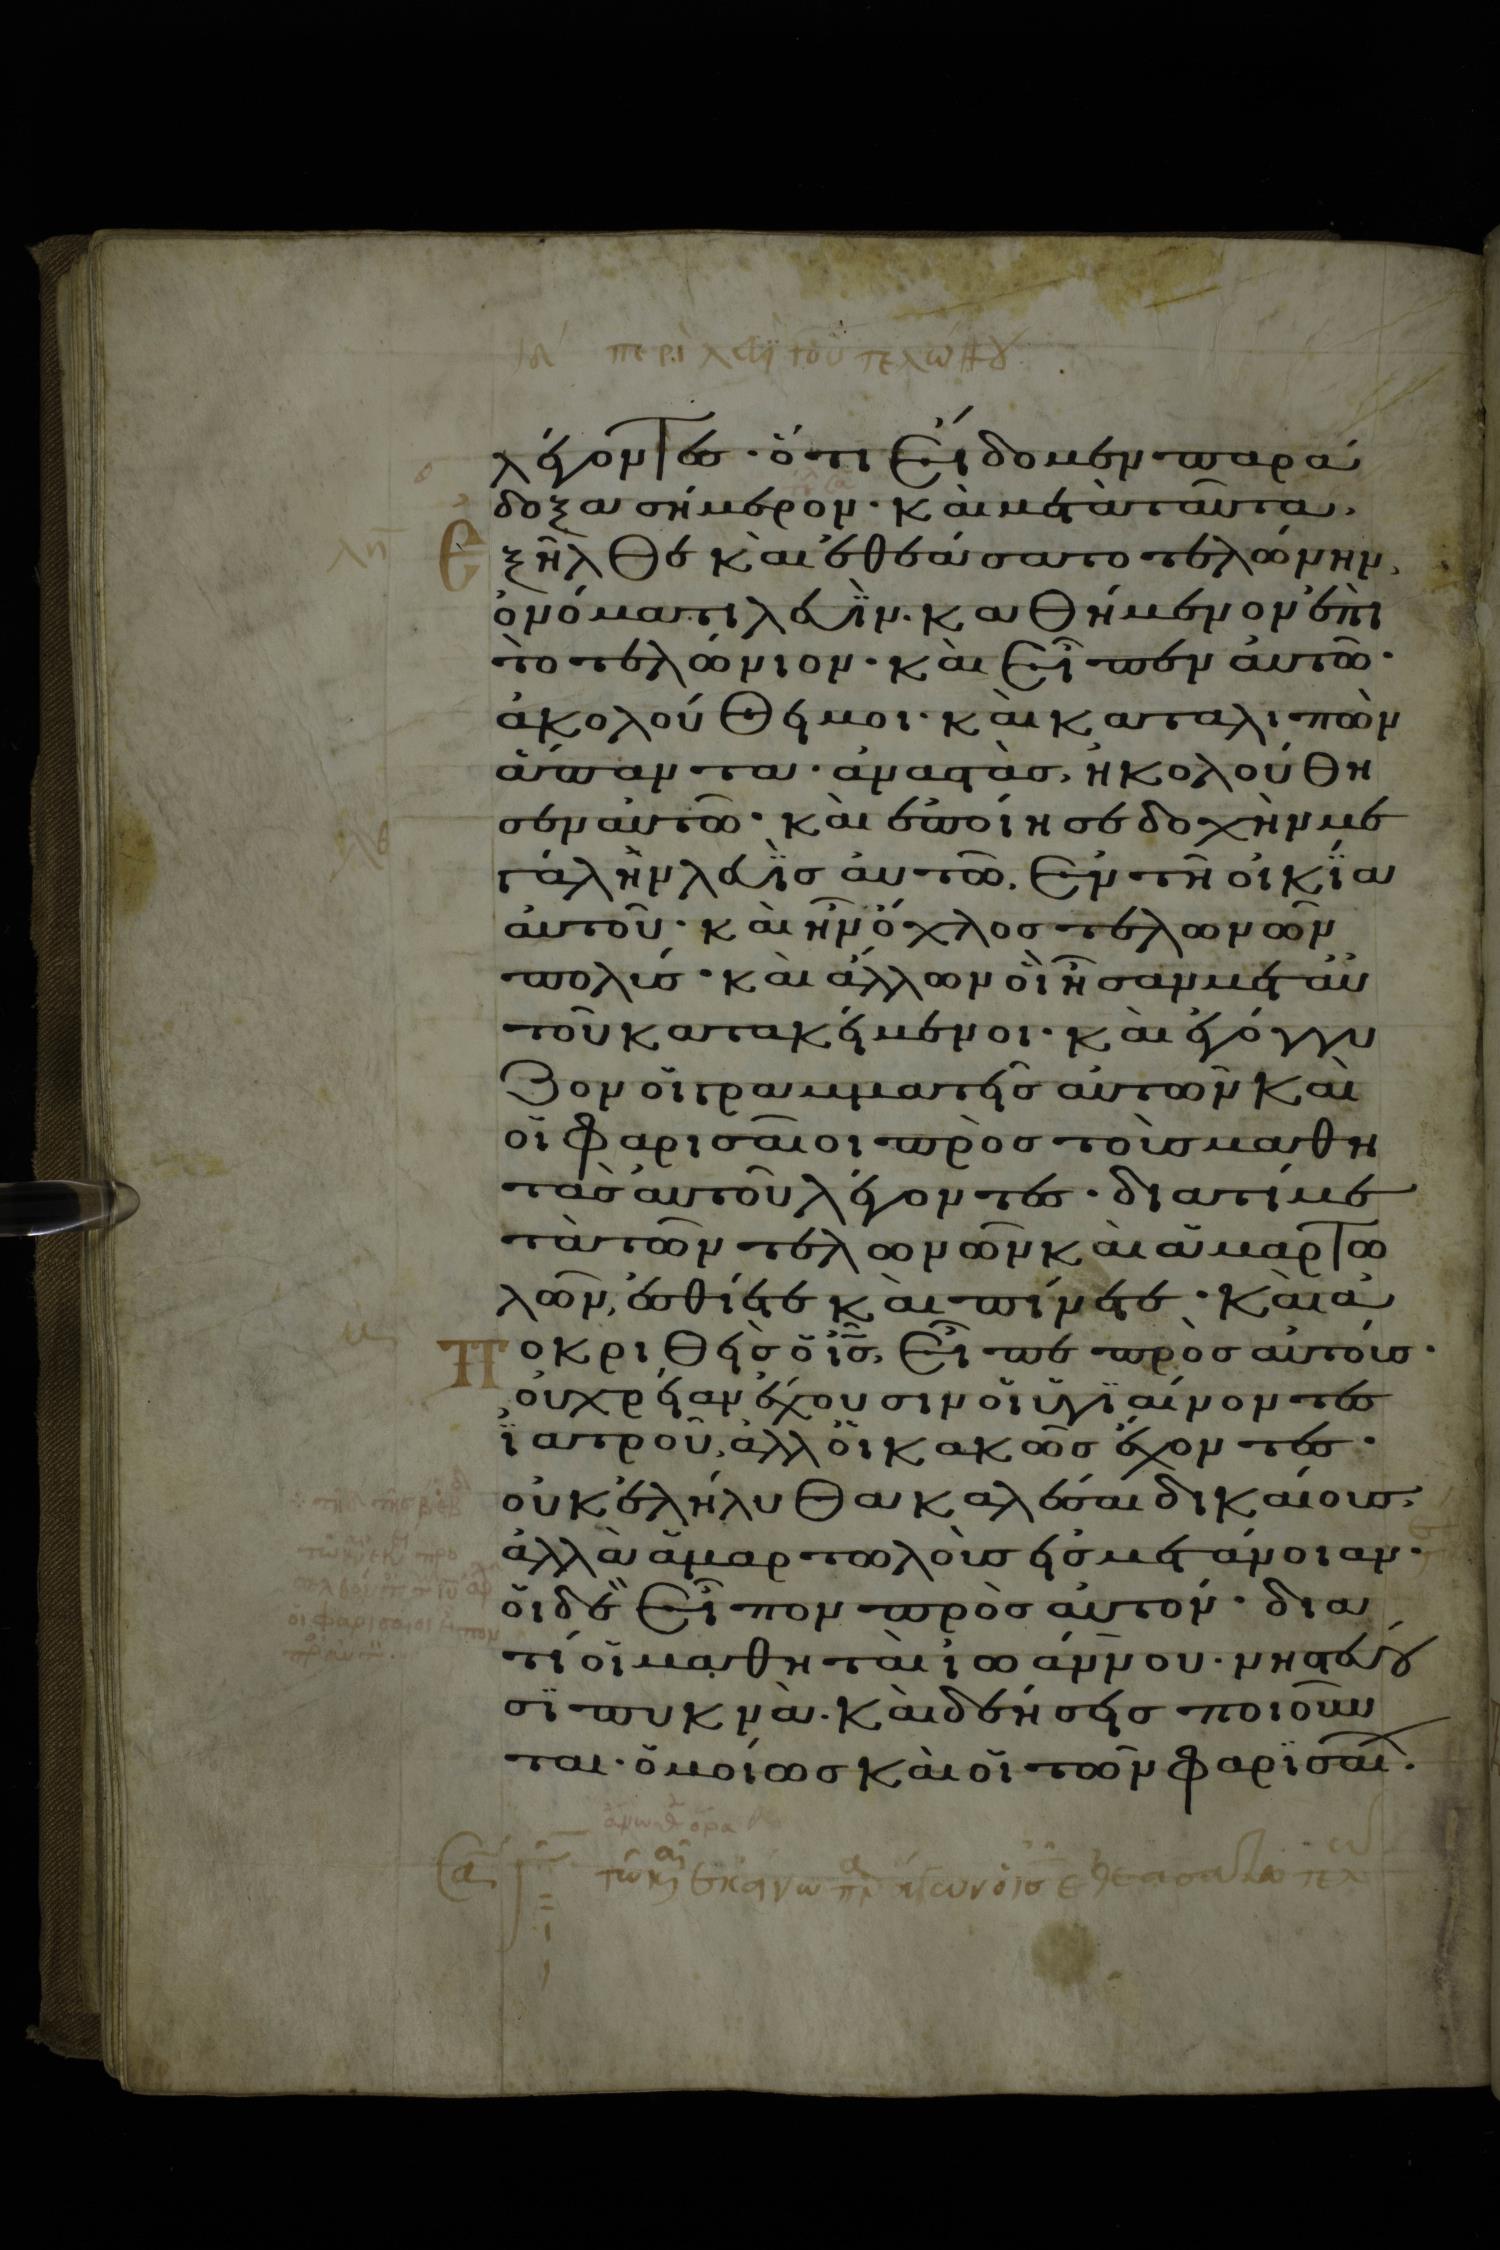 ιδ περὶ λευῒ τοῦ τελώνου
λέγοντες · ὅτι εἴδομεν παρά
δοξα σήμερον · καὶ μετὰ ταῦτα,
ἐξῆλθε καὶ ἐθεάσατο τελώνην,
ὀνόματι λευῒν · καθήμενον ἐπὶ
τὸ τελώνιον · καὶ εἶπεν αὐτῶ ·
ἀκολούθει μοι · καὶ καταλιπὼν
ἅπαντα · ἀναστὰς, ἠκολούθη
σεν αὐτῶ · καὶ ἐποίησε δοχὴν με
γάλην λευῒς αὐτῶ, ἐν τῆ οἰκΐα
αὐτοῦ · καὶ ἦν ὄχλος τελωνῶν
πολύς · καὶ ἄλλων οἳ ἦσαν μετ αὐ
τοῦ κατακείμενοι · καὶ ἐγόγγυ
ζον οἱ γραμματεῖς αὐτῶν καὶ
οἱ φαρισαῖοι πρὸς τοὺς μαθη
τὰς αὐτοῦ λέγοντες · διατί με
τὰ τῶν τελωνῶν καὶ ἁμαρτω
λῶν, ἐσθίετε καὶ πίνετε · καὶ ἀ
ποκριθεὶς ὁ ις, εἶπε πρὸς αὐτούς ·
οὐ χρείαν ἔχουσιν οἱ ὑγϊαίνοντες
ϊατροῦ, ἀλλ οἱ κακῶς ἔχοντες ·
οὐκ ἐλήλυθα καλέσαι δικαίους,
ἀλλὰ ἁμαρτωλοὺς εἰς μετάνοιαν ·
οἱ δὲ εἶπον πρὸς αὐτόν · δια
τί οἱ μαθηταὶ ἰωάννου · νηστεύου
σϊ πυκνὰ · καὶ δεήσεις ποιοῦν
ται · ὁμοίως καὶ οἱ τῶν φαρϊσαί ·